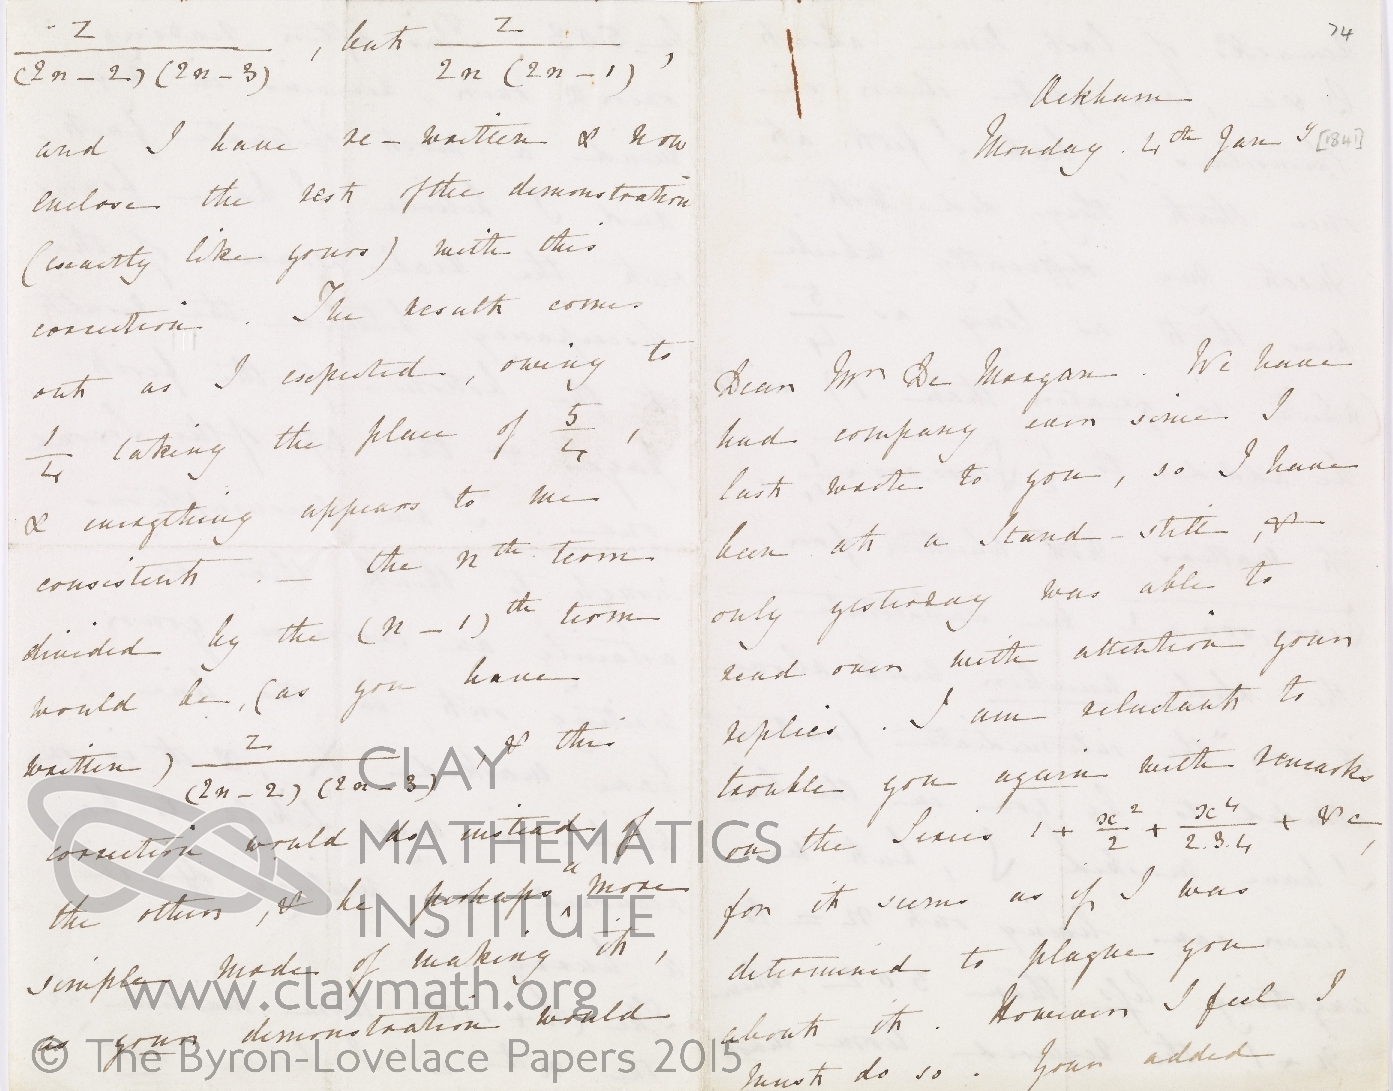 z/(2n-2)(2n-3), but z/2n(2n-1),
and I have re-written & now
enclose the rest of the demonstration
(exactly like yours) with this
correction. The result comes
out as I expected, owing to
1/4 taking the place of 5/4,
& everything appears to me
consistent. — the nth term
divided by the (n-1)th term
would be, (as you have
written) z/(2n-2)(2n-3), & this
correction would do instead of
the other, & be perhaps a more
simple mode of making it,
as your demonstration would
74
Ockham
Monday. 4th Jany [1841]
Dear Mr De Morgan. We have
had company ever since I
last wrote to you, so I have
been at a Stand-still, &
only yesterday was able to
read over with attention your
replies. I am reluctant to
trouble you again with remarks
on the Series 1 + x²/2 + x⁴/2.3.4 + &c,
for it seems as if I was
determined to plague you
about it. However I feel I
must do so. Your added
CLAY
MATHEMATICS
INSTITUTE
www.claymath.org
© The Byron-Lovelace Papers 2015